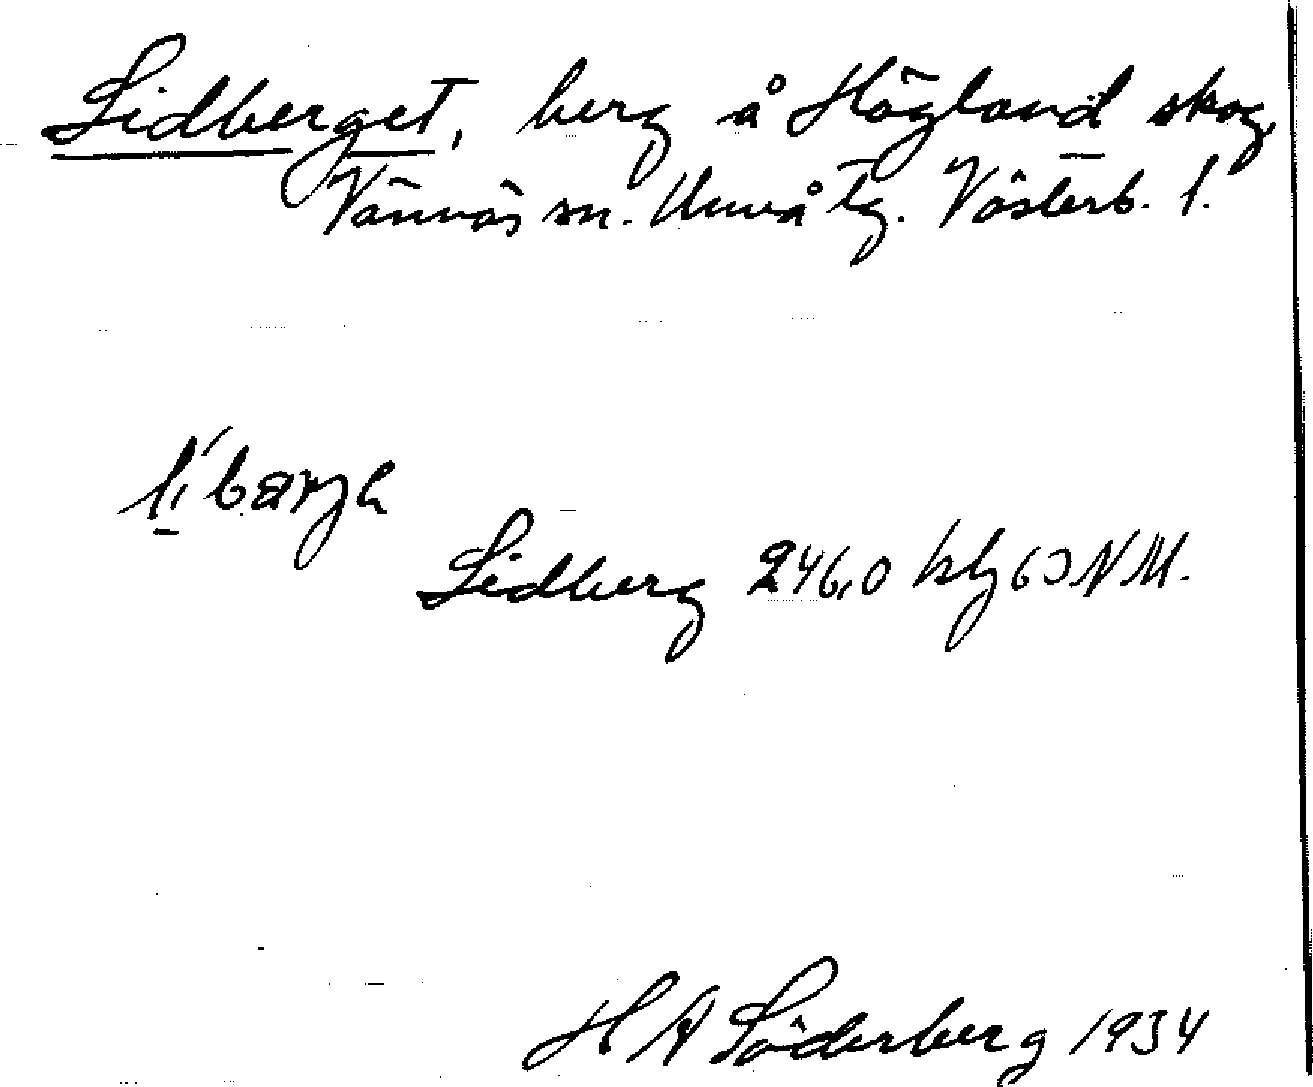 Lidberget, berg å Högland skog,
Vännäs sn. Umeå tg. Västerb. l.
Lidberg 246,0 hbl 63 NM.
H A Söderberg 1934